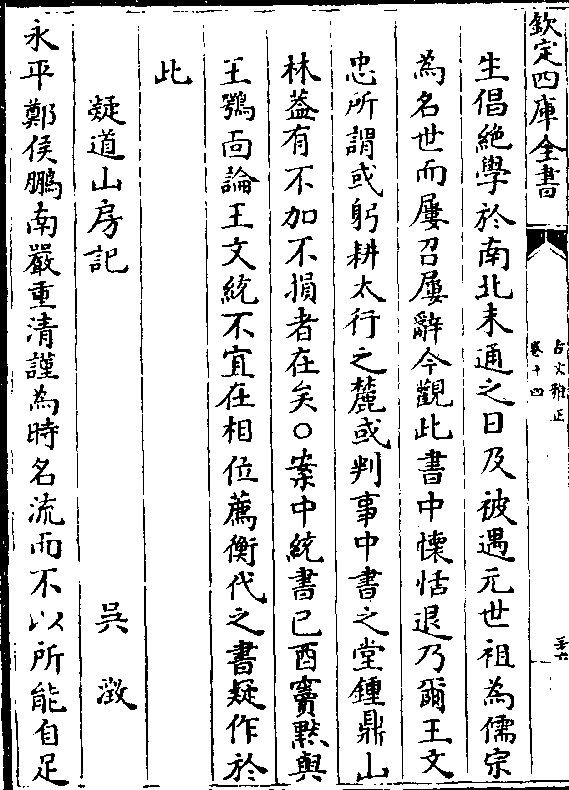 欽定四庫全書
古文雅正
卷十四
三十六
生倡絶學於南北未通之日及被遇元世祖為儒宗
為名世而屢召屢辭今觀此書中慄恬退乃爾王文
忠所謂或躬耕太行之麓或判事中書之堂鍾鼎山
林葢有不加不損者在矣○案中統書已酉竇黙與
王鶚面論王文統不宜在相位薦衡代之書疑作於
此
疑道山房記
吳澂
永平鄭侯鵬南嚴重清謹為時名流而不以所能自足